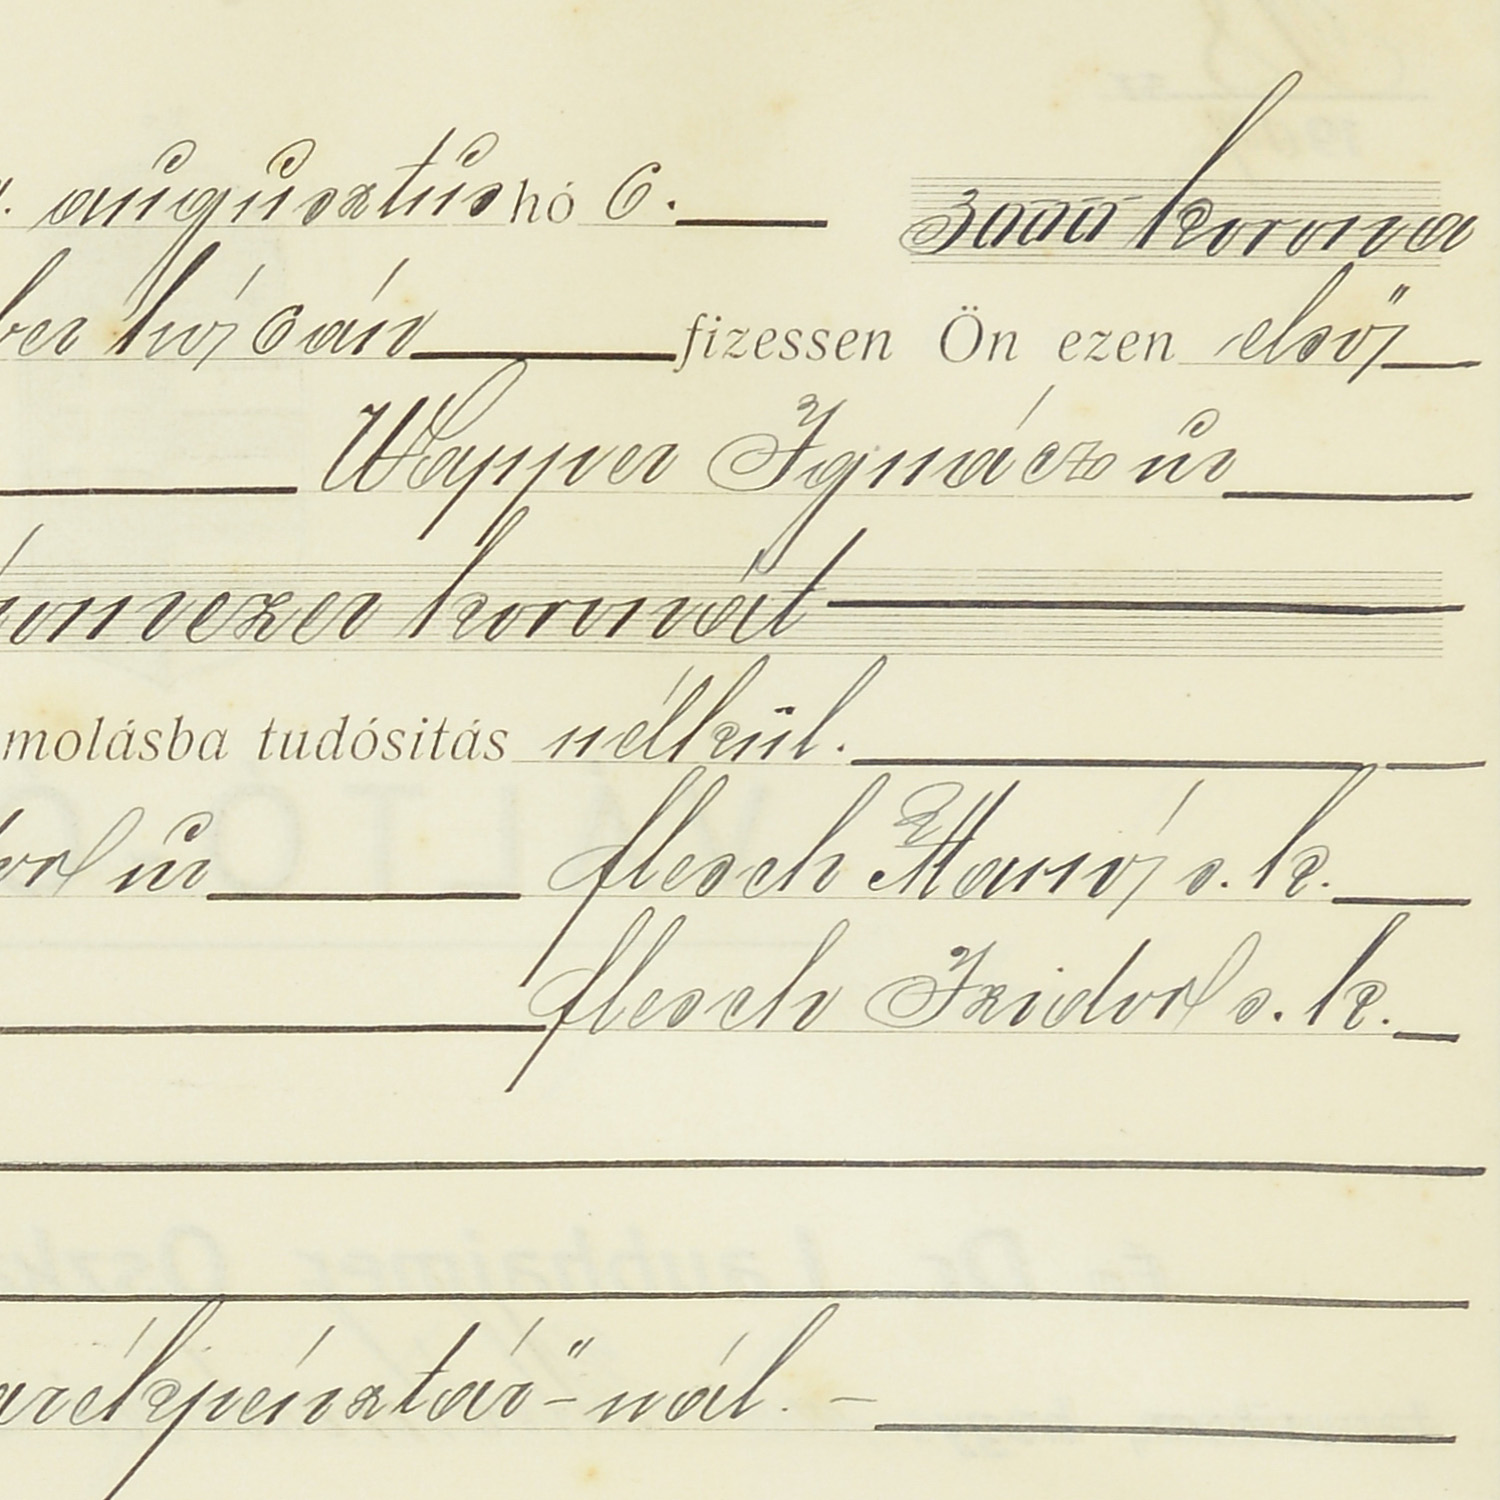 augusztus hó 6. 3000 korona
ber hó 6án fizessen Ön ezen első
Wapper Ignácz úr
romezer koronát
molásba tudósitás nélkül.
úr flesch Manó s. k.
flesch Izidor s. k.
arékpénztár"-nál. -